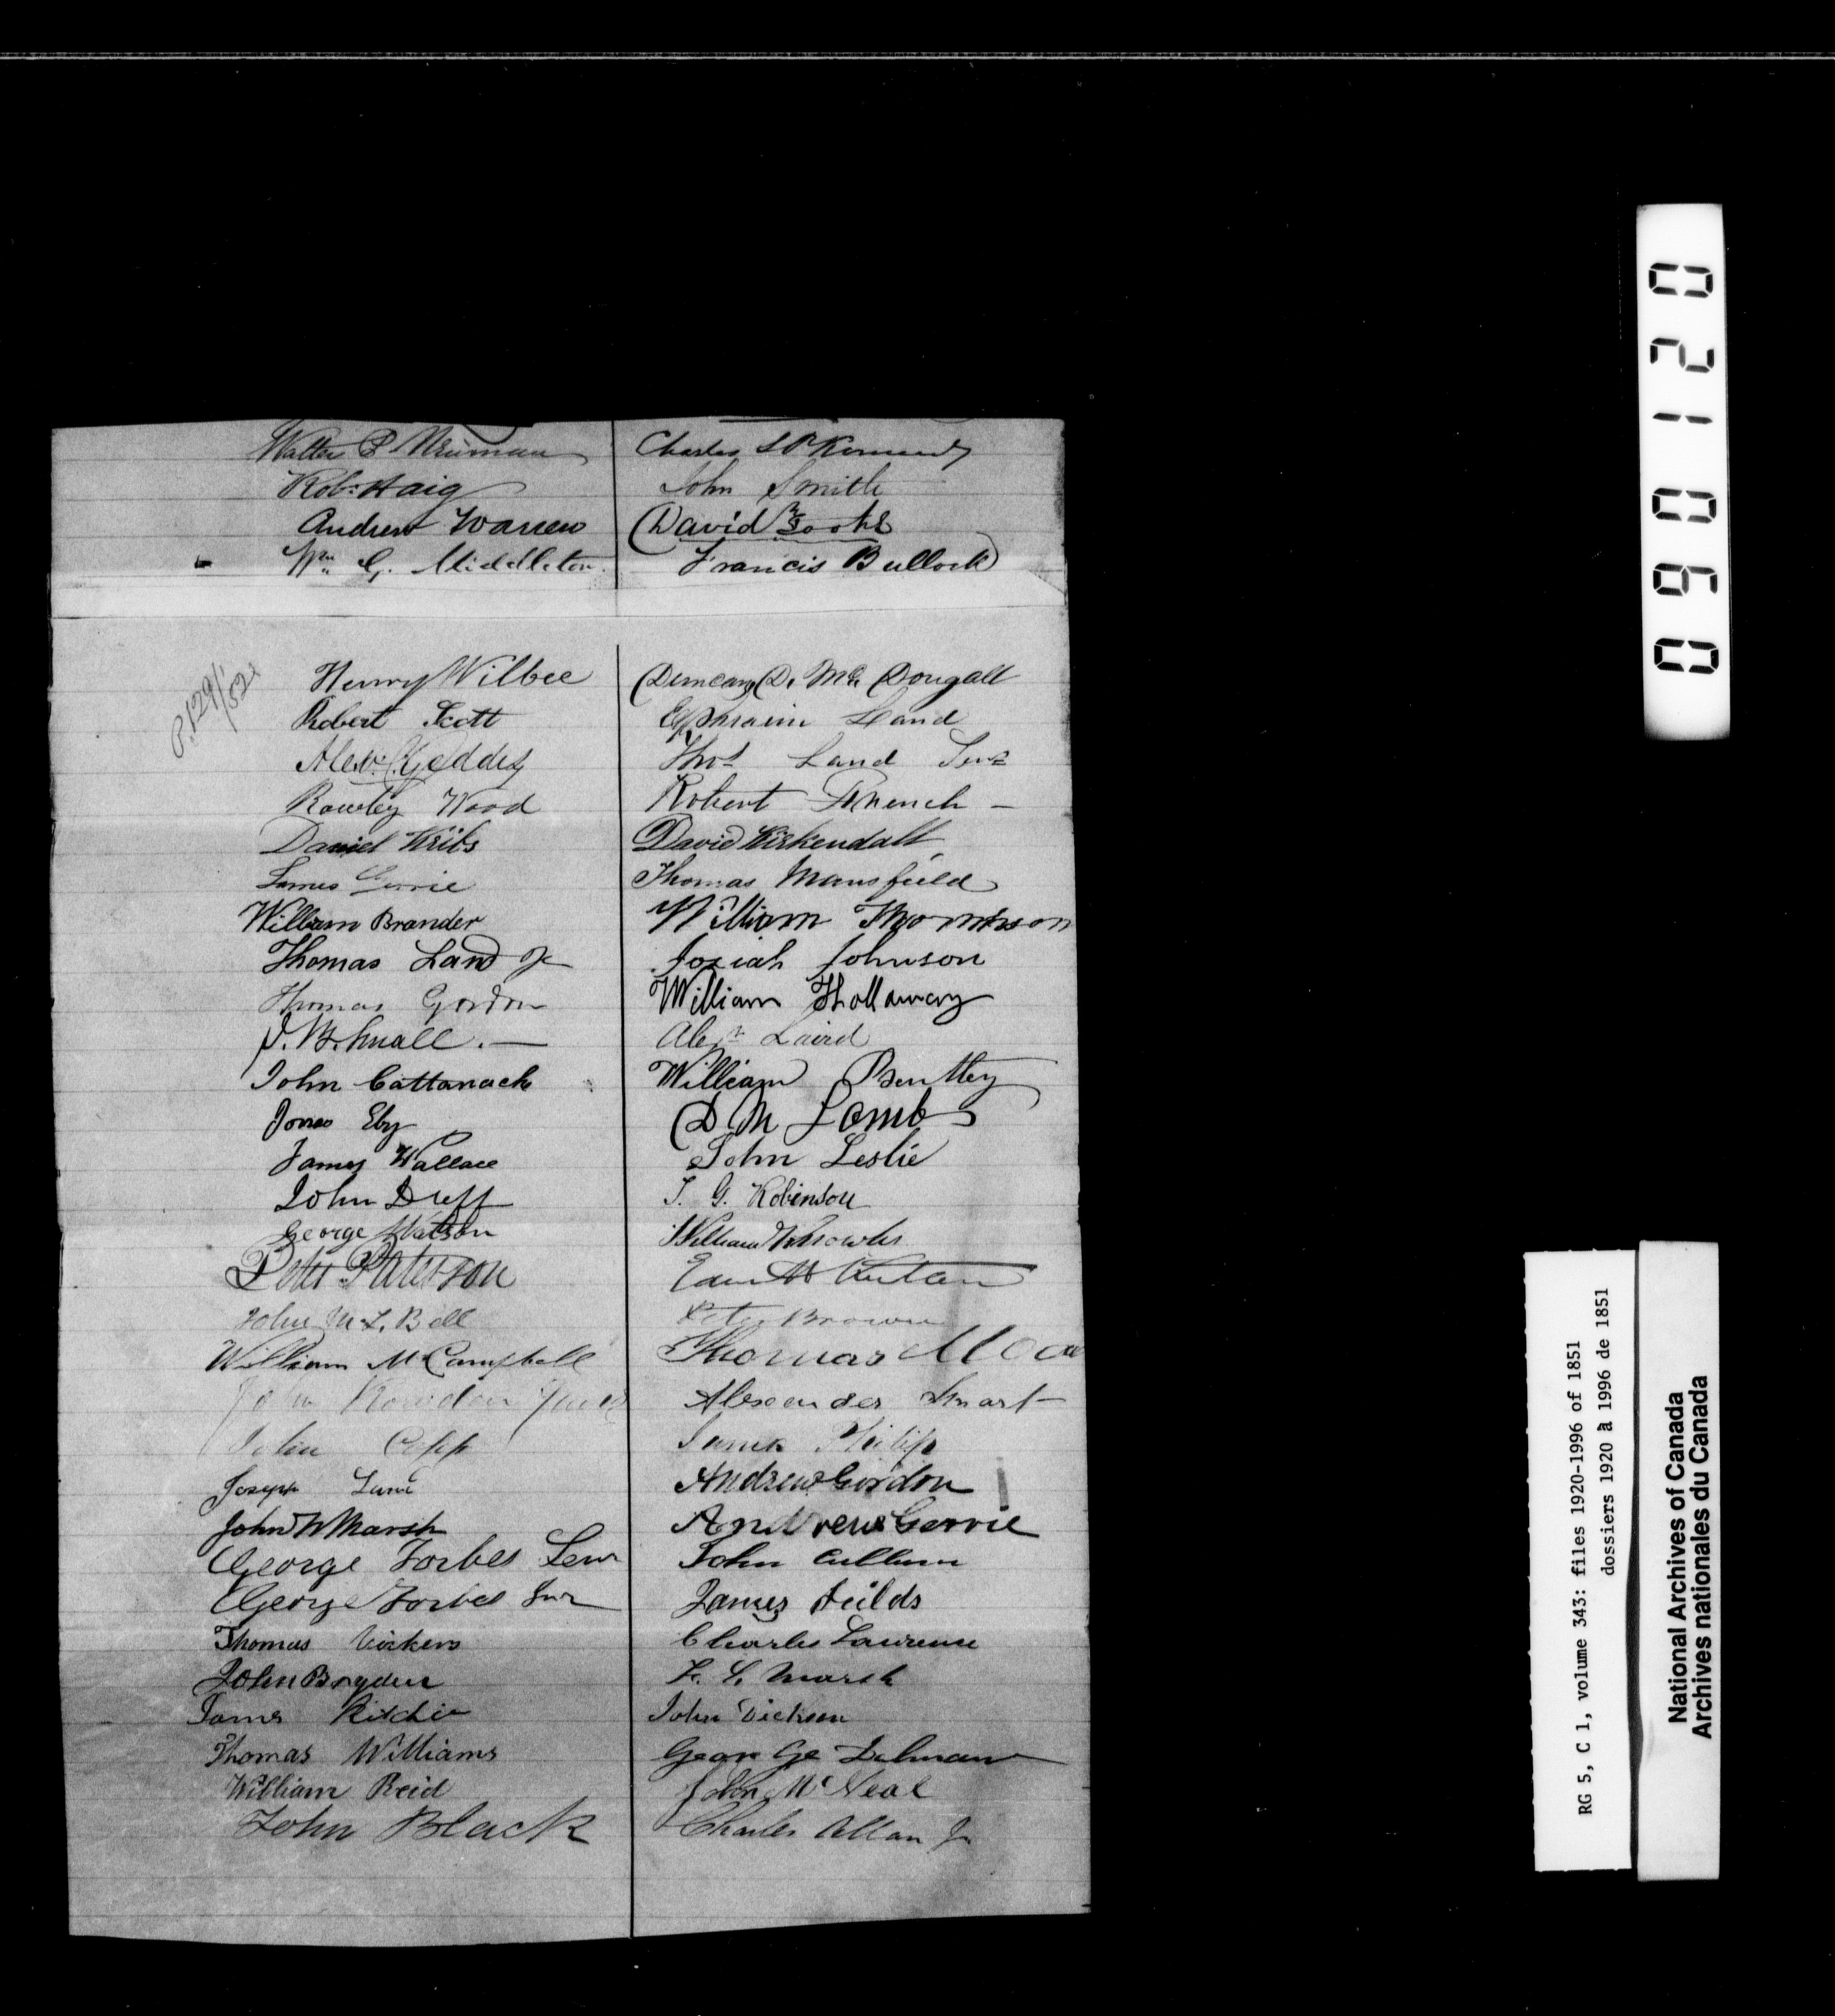 Walter P Newman
Robt Haig
Andrew Warren
Wm G. Middleton
Charles Kennedy
John Smith
David
Francis Bullock
P.129/52
Henry Wilbee
Robert Scott
Alexr Geddes
Rowley Wood
Daniel Kribs
James Gerrie
William Brander
Thomas Land Jr
Thomas Gordon
John Cattanach
Jonas Eby
James Wallace
John Duff
George Watson
Peter Paterson
John McL. Bell
William McCampbell
John
John Copp
Joseph
John W Marsh
George Forbes Senr
George Forbes Junr
Thomas Vickers
John Bogden
James Ritchie
Thomas Williams
William Reid
John Black
Duncan D. Mc Dougall
Ephraim Land
Thos Land Senr
Robert French
David Kirkendall
Thomas Mansfield
William Thompson
Josiah Johnson
William Hollaway
Alexr Laird
William Bentley
D M Lamb
John Leslie
T. G. Robinson
William Knowles
Peter Brown
Thomas
Alexander Smart
James Philip
Andrew Gordon
Andrew Gerrie
John Cullum
James Feilds
Charles Lawrence
Marsh
John Dickson
George
John McNeal
Charles Allan Jr
0 9 0 1 2 0
RG 5, C 1, volume 343: files 1920-1996 of 1851
dossiers 1920 à 1996 de 1851
National Archives of Canada
Archives nationales du Canada